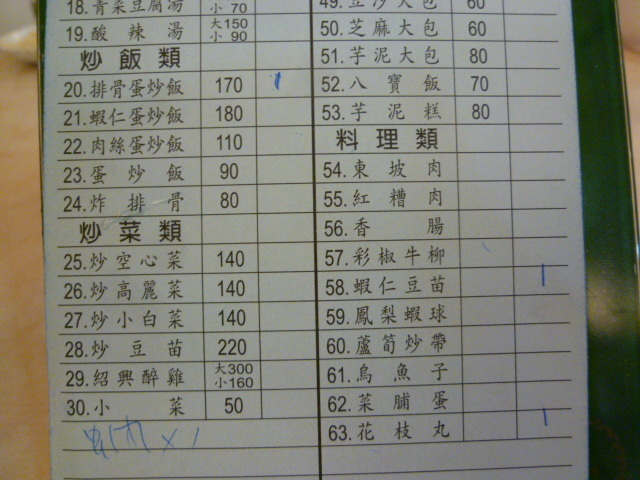 18.青菜豆腐湯 小 70
19.酸辣湯 大150 小 90
炒飯類
20.排骨蛋炒飯 170 1
21.蝦仁蛋炒飯 180
22.肉絲蛋炒飯 110
23.蛋炒飯 90
24.炸排骨 80
炒菜類
25.炒空心菜 140
26.炒高麗菜 140
27.炒小白菜 140
28.炒豆苗 220
29.紹興醉雞 大300 小160
30.小菜 50
x 1
49.豆沙大包 60
50.芝麻大包 60
51.芋泥大包 80
52.八寶飯 70
53.芋泥糕 80
料理類
54.東坡肉
55.紅糟肉
56.香腸
57.彩椒牛柳
58.蝦仁豆苗 1
59.鳳梨蝦球
60.蘆筍炒帶
61.烏魚子
62.菜脯蛋
63.花枝丸 1